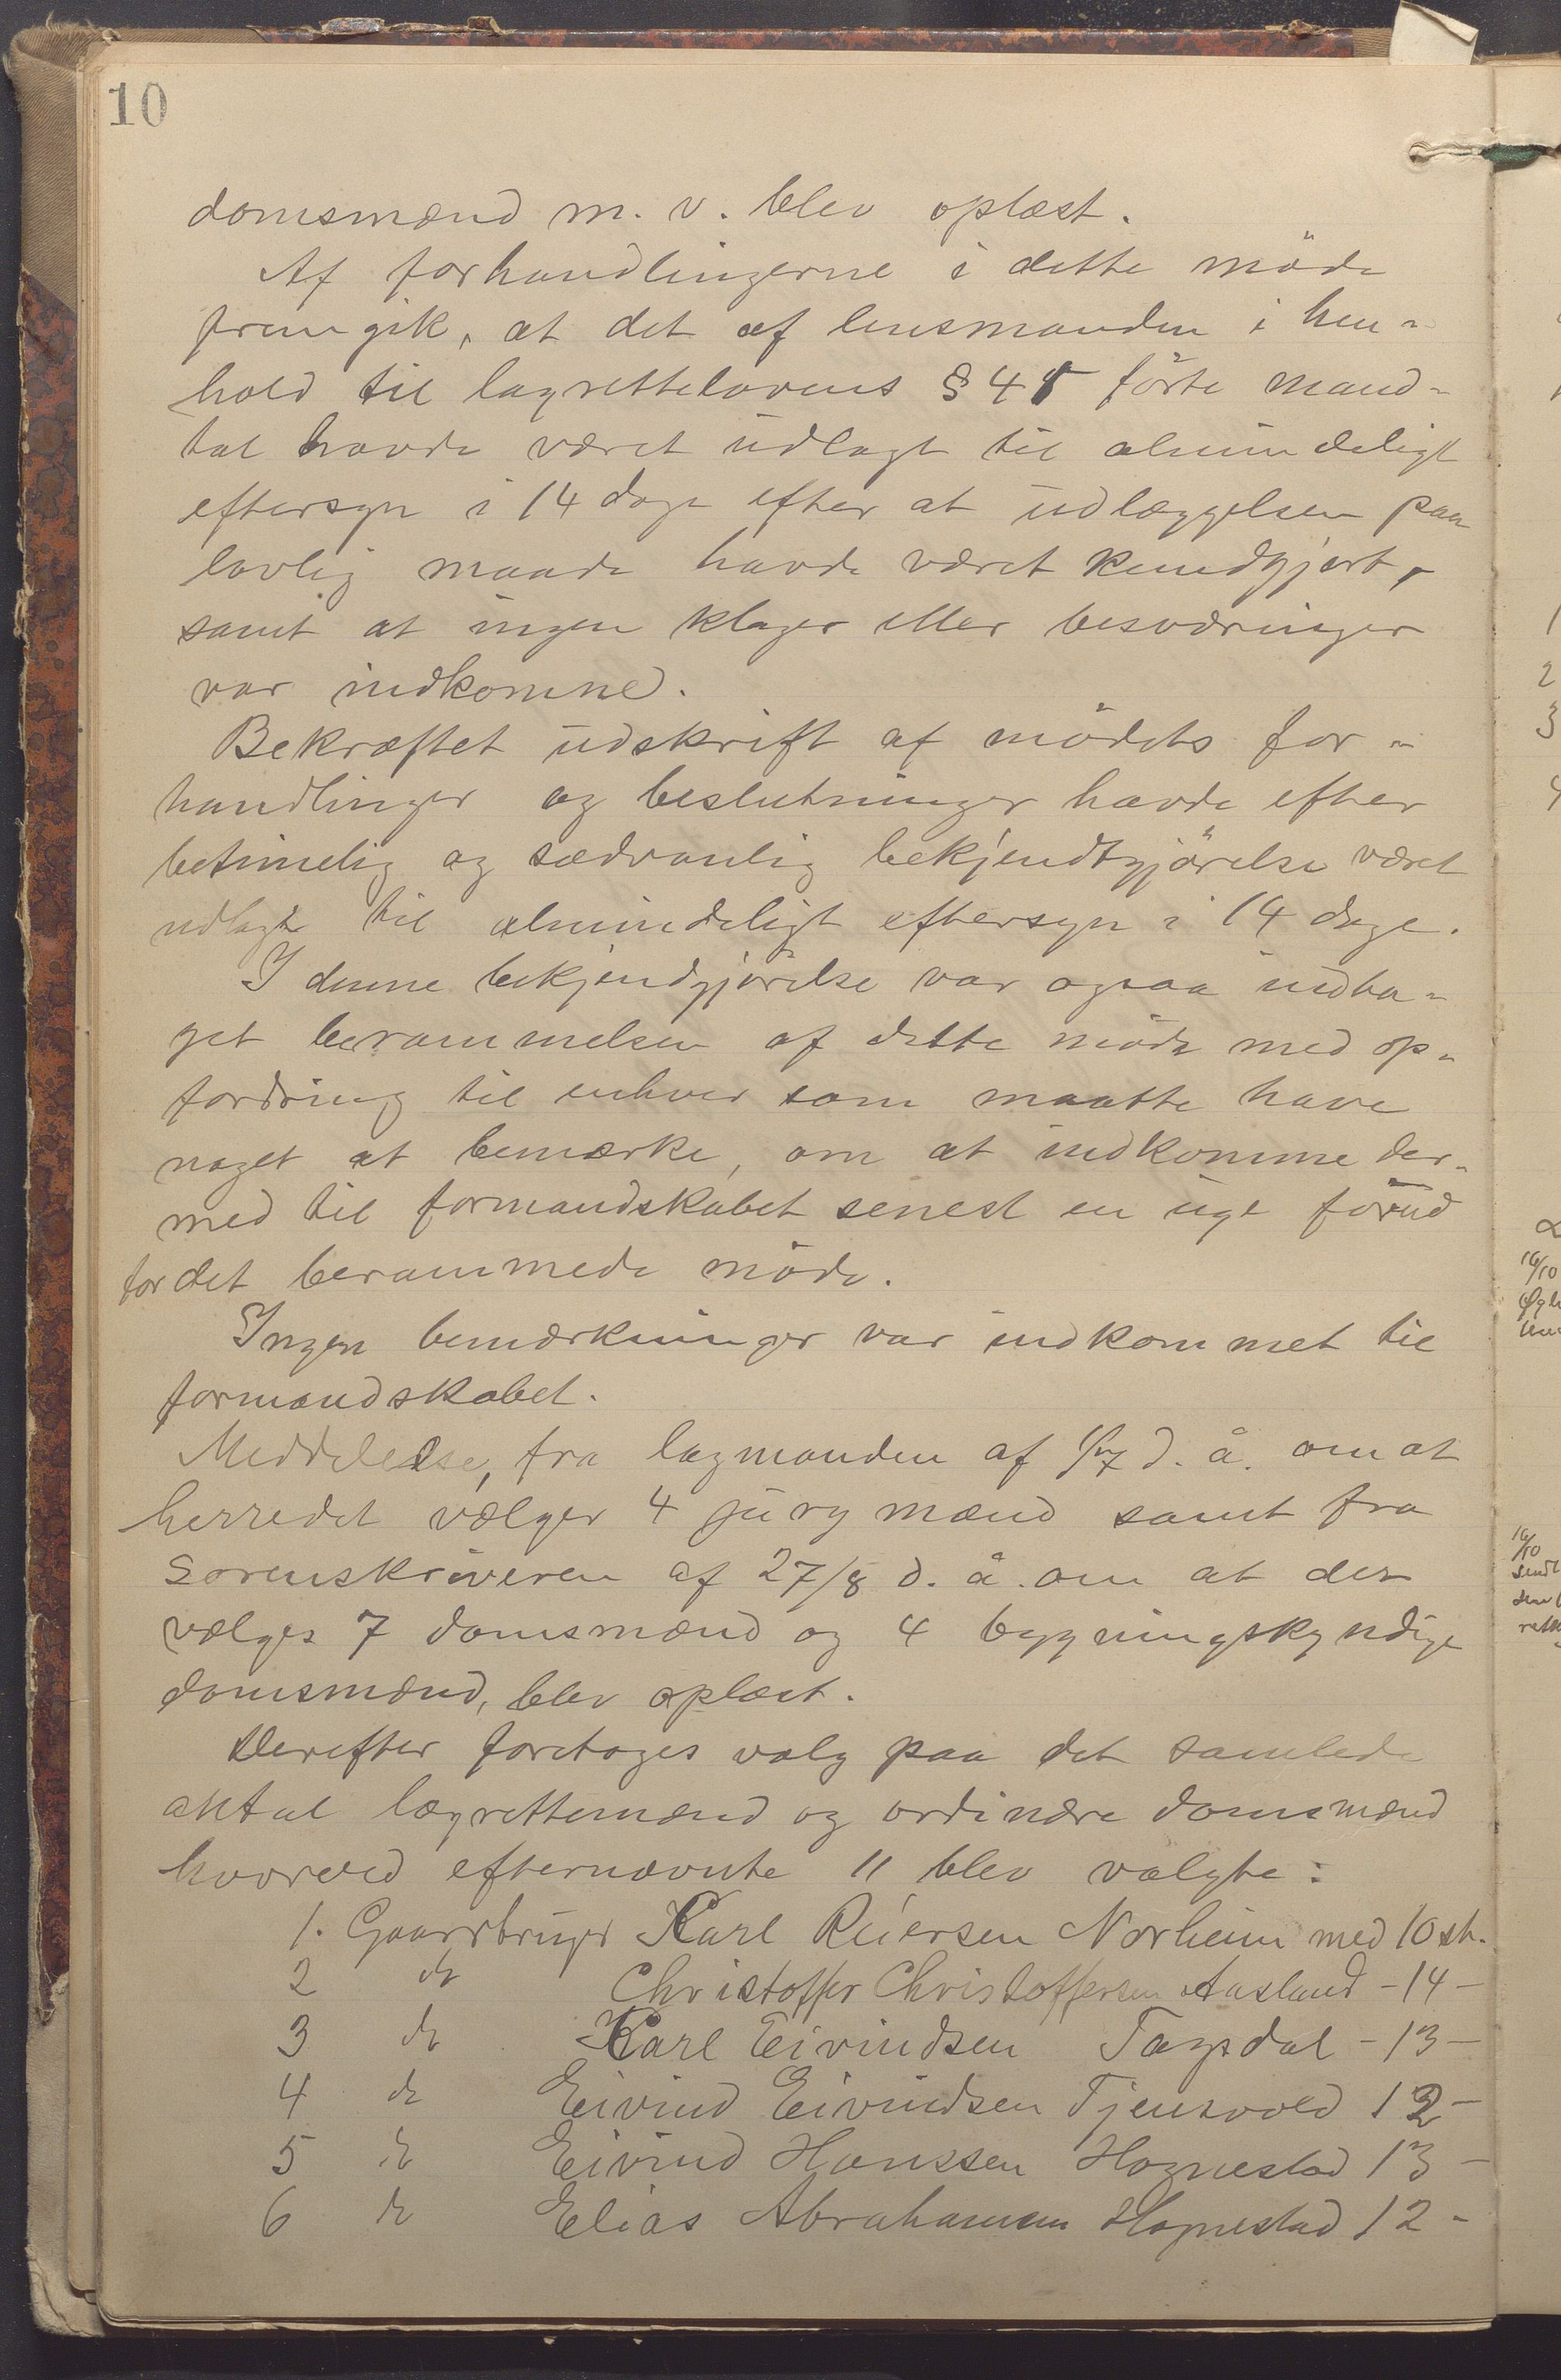 10
domsmænd m. v. blev oplæst.
Af forhandlingerne i dette möde
fremgik, at det af lensmanden i hen-
hold til lagrettelovens § 45 förte mand-
tal havde været udlagt til almindeligt
eftersyn i 14 dage efter at udlæggelsen paa
lovlig maade havde været kundgjort,
samt at ingen klager eller besværinger
var indkomne.
Bekræftet udskrift af mödets for-
handlinger og beslutninger havde efter
betimelig og sædvanlig bekjendtgjörelse været
udlagt til almindeligt eftersyn i 14 dage.
I denne bekjendgjörelse var ogsaa indta-
get berammelsen af dette möde med op-
fordring til enhver som maatte have
noget at bemærke, om at indkomme der-
med til formandskabet senest en uge forud
for det berammede möde.
Ingen bemærkninger var indkommet til
formandskabet.
Meddelelse, fra lagmanden af d. å. om at
herredet vælger 4 jurymænd samt fra
Sorenskriveren af 27/8 d. å. om at der
vælges 7 domsmænd og 4 bygningskyndige
domsmænd, blev oplæst.
Derefter foretoges valg paa det samlede
antal lagrettemænd og ordinære domsmænd
hvorved efternævnte 11 blev valgte:
1. Gaardbruger Karl Reiersen Norheim med 10 st.
2 do Christoffer Christoffersen Aasland - 14 -
3 do Karl Eivindsen Tagsdal - 13 -
4 do Eivind Eivindsen Tjensvold 12 -
5 do Eivind Hanssen Hognestad 13 -
6 do Elias Abrahamsen Hognestad 12 -
1
2
3
4
16/10
16/10